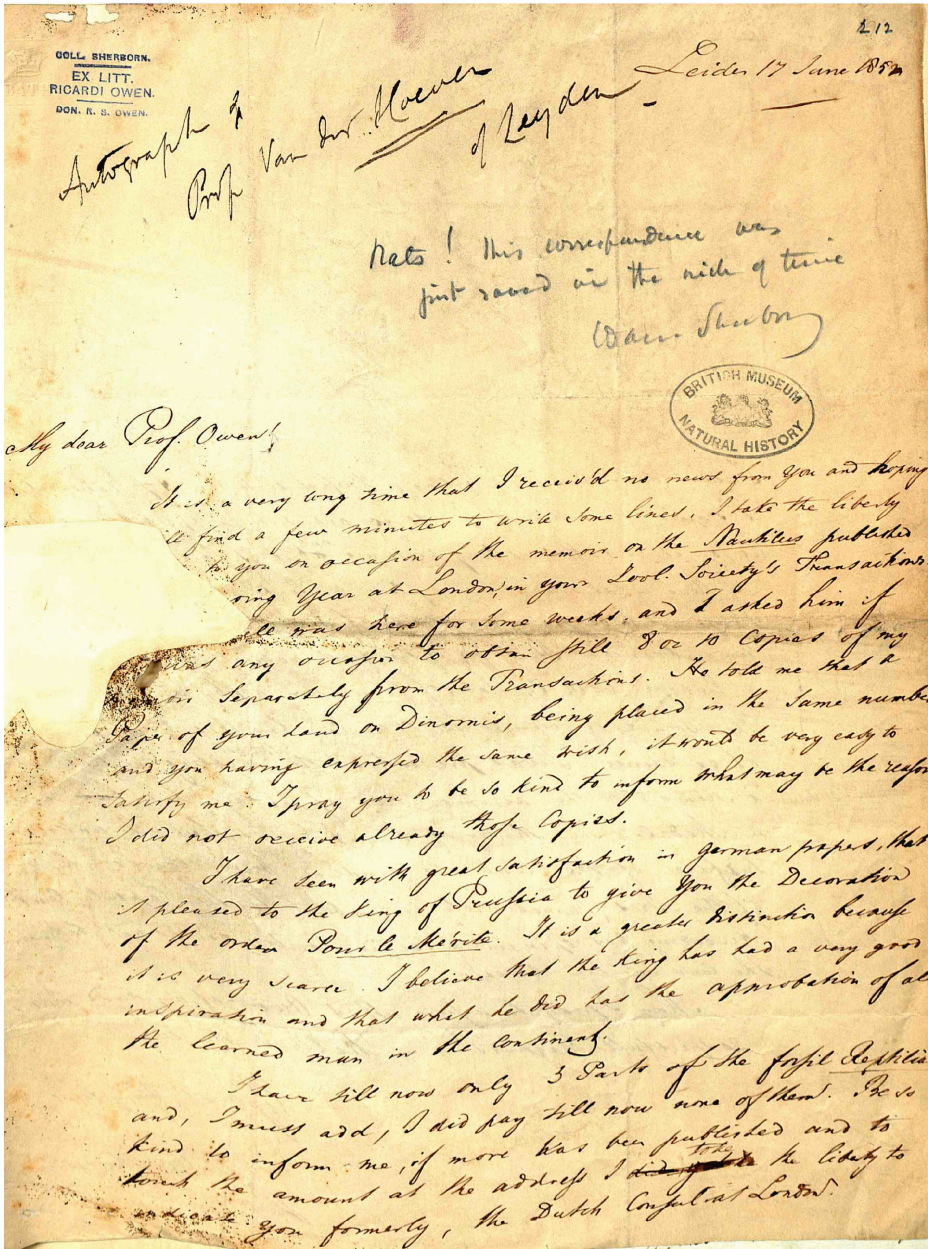 212
COLL. SHERBORN.
EX LITT.
RICARDI OWEN.
DON. R. S. OWEN.
Leiden 17 June 1852
Autograph of
Prof Van der Hoeven
of Leyden
Rats! this correspondence was
just saved in the nick of time
Davies Sherborn
BRITISH MUSEUM
NATURAL HISTORY
My dear Prof. Owen!
It is a very long time that I receiv'd no news from you and hoping
ll find a few minutes to write some lines, I take the liberty
you on occasion of the memoir on the Nautilus published
oing Year at London, in your Zool. Society's Transactions.
was here for some weeks, and I asked him if
was any occasion to obtain still 8 or 10 Copies of my
moir Separately from the Transactions. He told me that a
Paper of your hand on Dinornis, being placed in the same number
and you having expressed the same wish, it would be very easy to
satisfy me. I pray you to be so kind to inform what may be the reason
I did not receive already those Copies.
I have seen with great satisfaction in german papers, that
it pleased to the King of Prussia to give You the Decoration
of the order Pour le Mérite. It is a greater distinction because
it is very scarce. I believe that the King has had a very good
inspiration and that what he did has the approbation of all
the learned man in the continent.
I have till now only 3 Parts of the fossil Reptilia
and, I must add, I did pay till now none of them. Be so
kind to inform me, if more has been published and to
the amount at the address I did took the liberty to
indicate you formerly, the Dutch Consul at London.